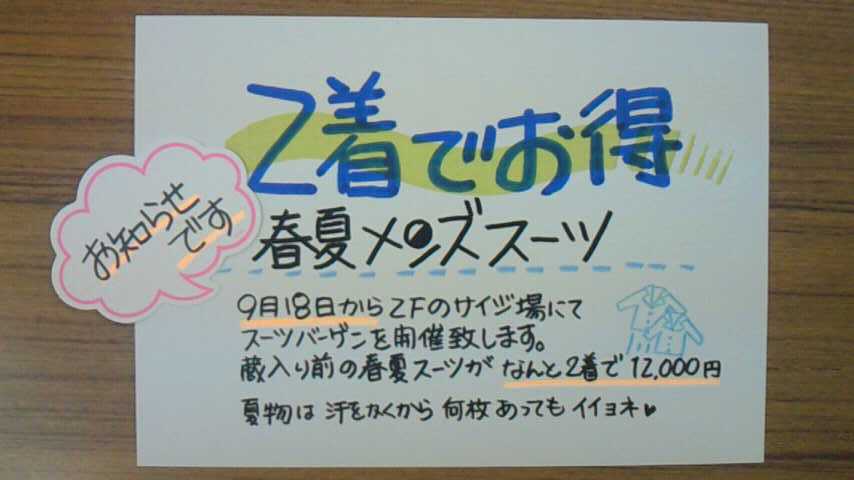 2着でお得
お知らせ
です
春夏メンズスーツ
9月18日から2Fのサイジ場にて
スーツバーゲンを開催致します。
蔵入り前の春夏スーツが なんと2着で12,000円
夏物は汗をかくから何枚あってもイイヨネ♥